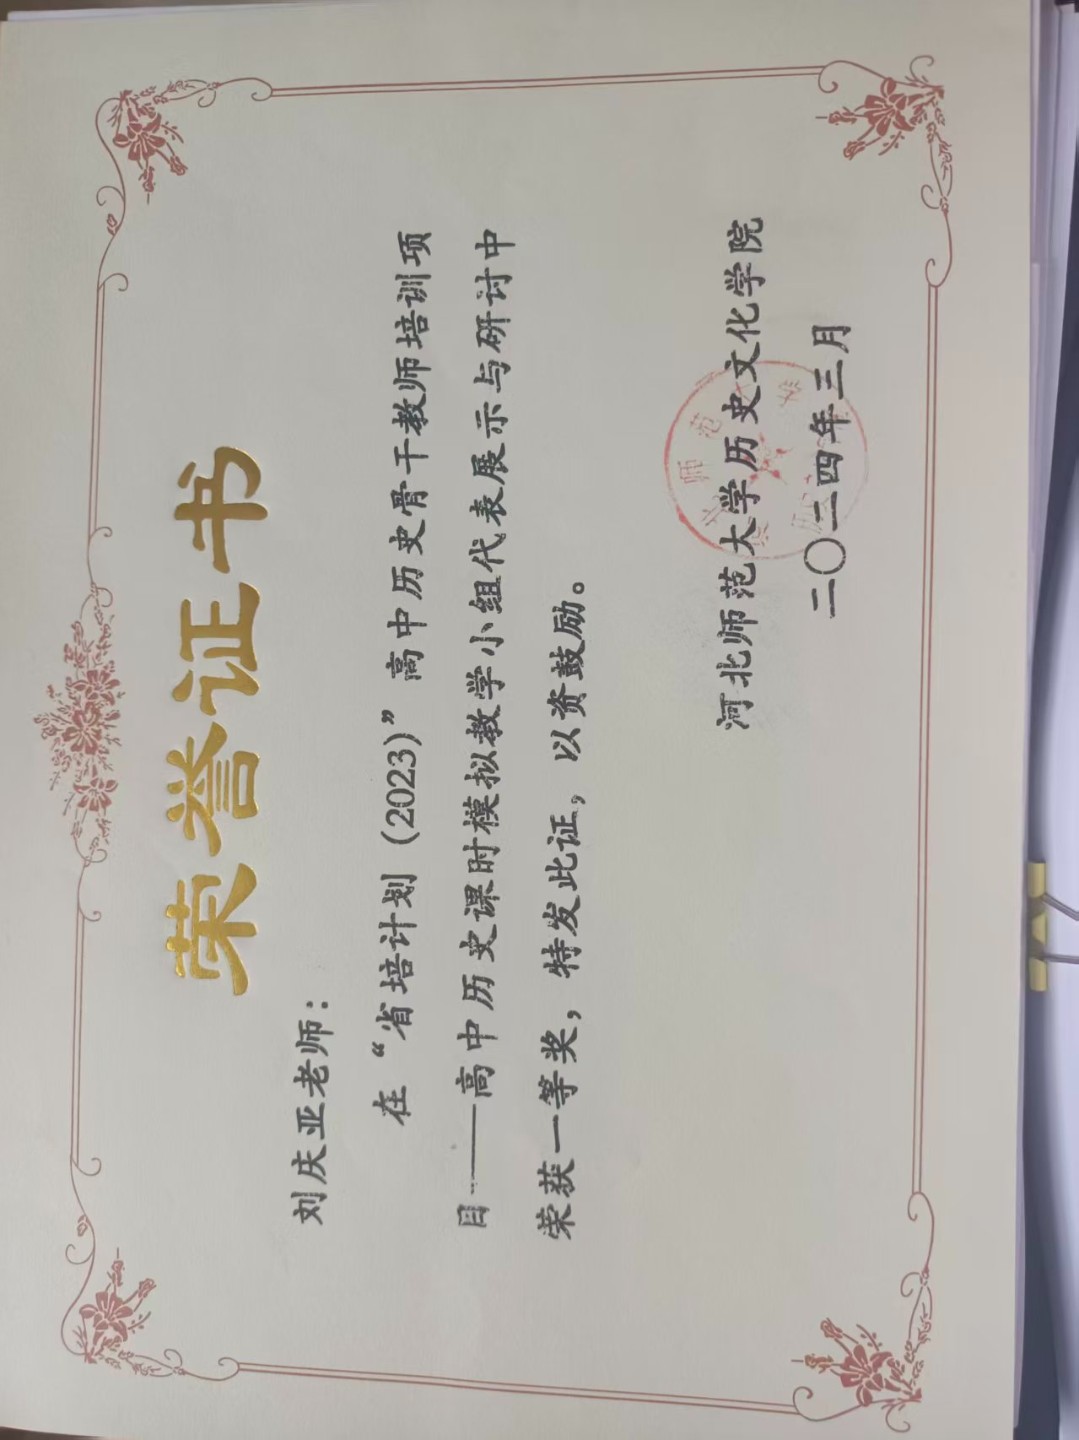 荣誉证书
刘庆亚老师：
在“省培计划（2023）”高中历史骨干教师培训项
目——高中历史课时模拟教学小组代表展示与研讨中
荣获一等奖，特发此证，以资鼓励。
河北师范大学历史文化学院
二〇二四年三月